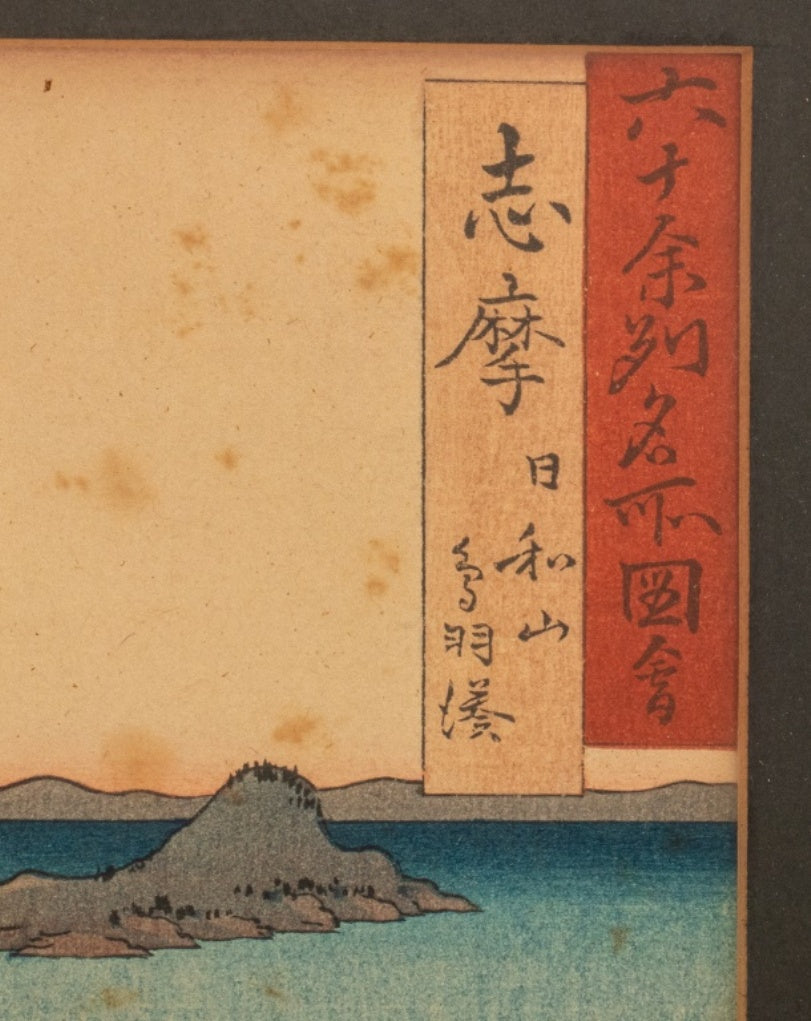 六十余州名所圖會
志摩
日和山
鳥羽湊